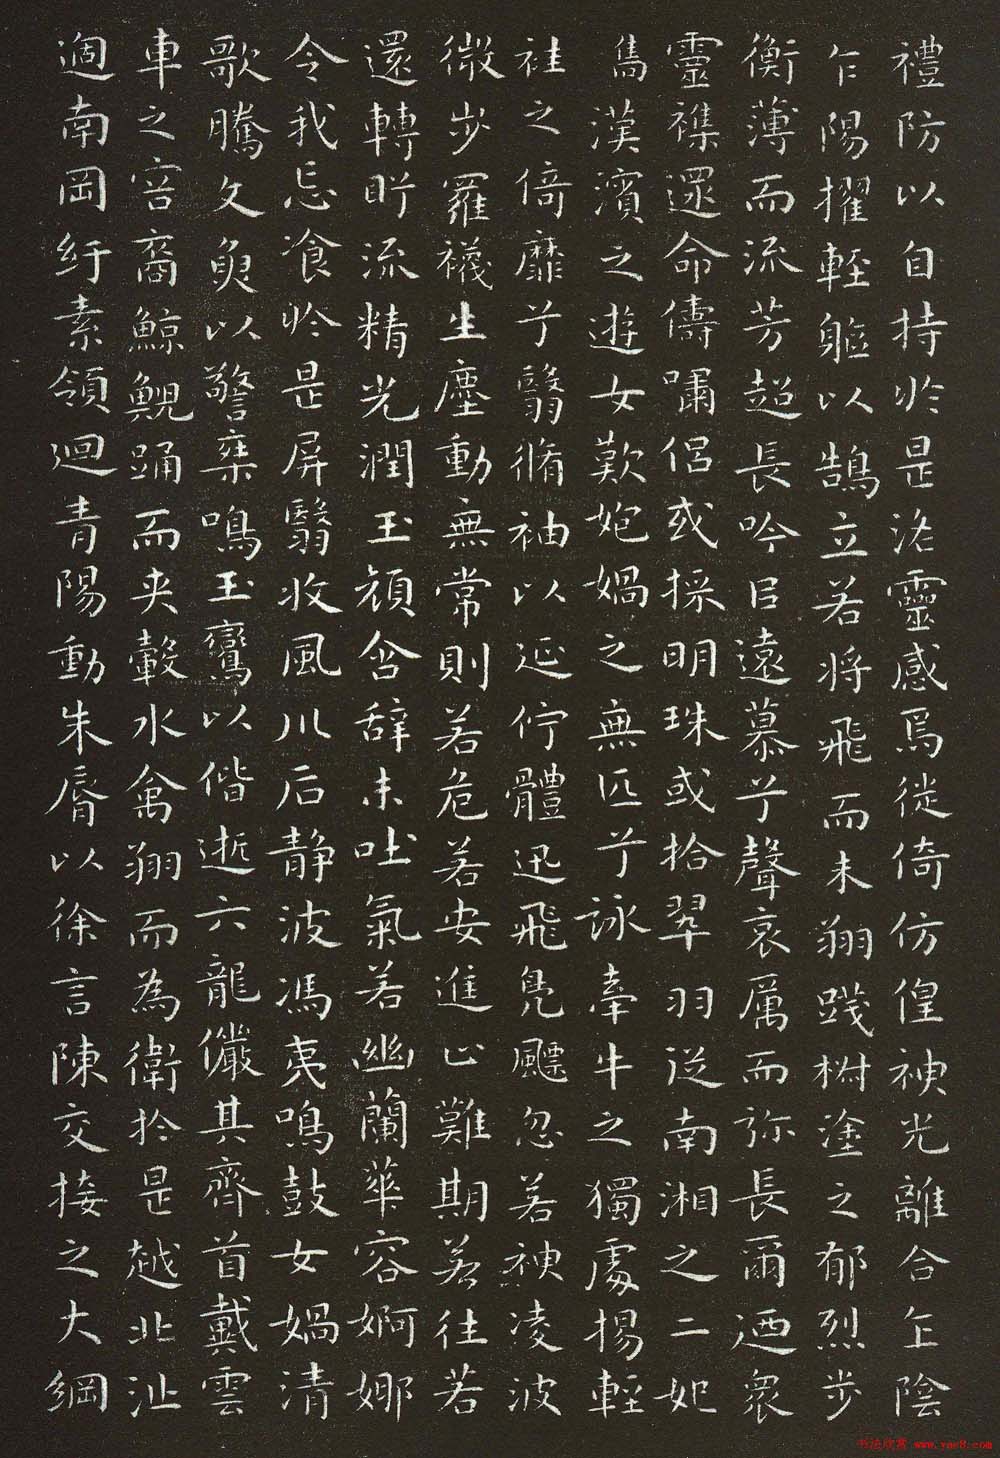 禮防以自持於是洛靈感焉徙倚仿偟神光離合乍陰
乍陽擢輕軀以鵠立若将飛而未翔踐椒塗之郁烈步
衡薄而流芳超長吟以遠慕兮聲哀厲而弥長爾迺衆
靈襍還命儔嘯侣或採明珠或拾翠羽従南湘之二妃
㩗漢濱之遊女歎匏媧之無匹兮詠牽牛之獨處揚輕
袿之倚靡兮翳脩袖以延佇體迅飛鳧飄忽若神凌波
微步羅襪生塵動無常則若危若安進止難期若往若
還轉眄流精光潤玉顔含辞未吐氣若幽蘭華容婀娜
令我忘飡於是屏翳收風川后静波馮夷鳴鼓女媧清
歌騰文魚以警乗鳴玉鸞以偕逝六龍儼其齊首戴雲
車之容裔鯨鯢踊而夹轂水禽翔而為衛於是越北沚
過南岡紆素領迴青陽動朱脣以徐言陳交接之大綱
书法欣赏 www.yac8.com